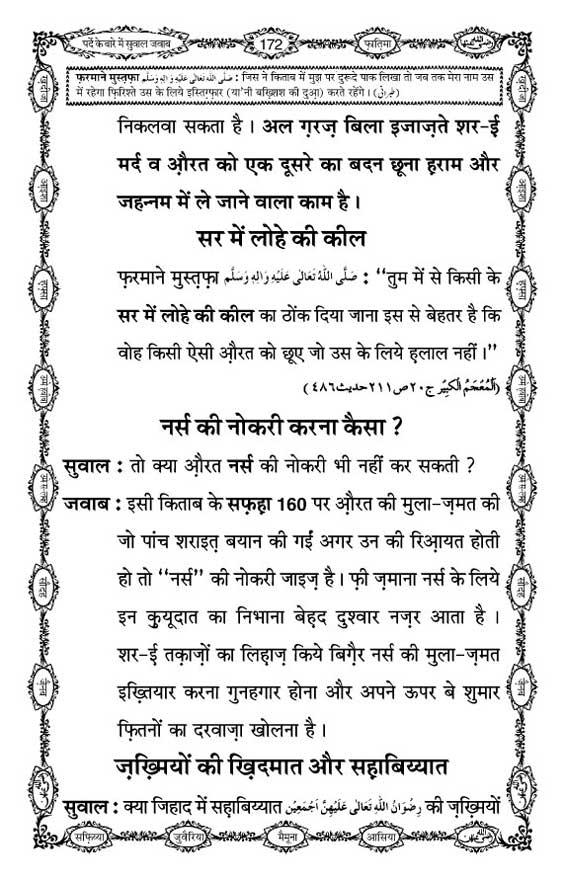 पर्दे के बारे में सुवाल जवाब
172
फ़ातिमा
फ़रमाने मुस्तफ़ा صَلَّى اللهُ تَعَالٰى عَلَيْهِ وَاٰلِهٖ وَسَلَّم : जिस ने किताब में मुझ पर दुरूदे पाक लिखा तो जब तक मेरा नाम उस
में रहेगा फ़िरिश्ते उस के लिये इस्तिग़्फ़ार (या'नी बख़्शिश की दुआ) करते रहेंगे। (طبرانی)
निकलवा सकता है । अल ग़रज़ बिला इजाज़ते शर-ई
मर्द व औ़रत को एक दूसरे का बदन छूना ह़राम और
जहन्नम में ले जाने वाला काम है ।
सर में लोहे की कील
फ़रमाने मुस्त़फ़ा صَلَّى اللهُ تَعَالٰى عَلَيْهِ وَاٰلِهٖ وَسَلَّم : ‘‘तुम में से किसी के
सर में लोहे की कील का ठोंक दिया जाना इस से बेहतर है कि
वोह किसी ऐसी औ़रत को छूए जो उस के लिये ह़लाल नहीं ।’’
(اَلْمُعْجَمُ الْكبِير ج٢٠ ص٢١١ حديث٤٨٦)
नर्स की नोकरी करना कैसा ?
सुवाल : तो क्या औ़रत नर्स की नोकरी भी नहीं कर सकती ?
जवाब : इसी किताब के सफ़ह़ा 160 पर औ़रत की मुला-ज़मत की
जो पांच शराइत़ बयान की गईं अगर उन की रिआ़यत होती
हो तो ‘‘नर्स’’ की नोकरी जाइज़ है । फ़ी ज़माना नर्स के लिये
इन क़ुयूदात का निभाना बेह़द दुश्वार नज़र आता है ।
शर-ई तक़ाज़ों का लिह़ाज़ किये बिग़ैर नर्स की मुला-ज़मत
इख़्तियार करना गुनहगार होना और अपने ऊपर बे शुमार
फ़ितनों का दरवाज़ा खोलना है ।
ज़ख़्मियों की ख़िदमात और सह़ाबिय्यात
सुवाल : क्या जिहाद में सह़ाबिय्यात رِضْوَانُ اللهِ تَعَالٰى عَلَيْهِنَّ اَجْمَعِيْن की ज़ख़्मियों
सफ़िय्या
जुवैरिया
मैमूना
आसिया